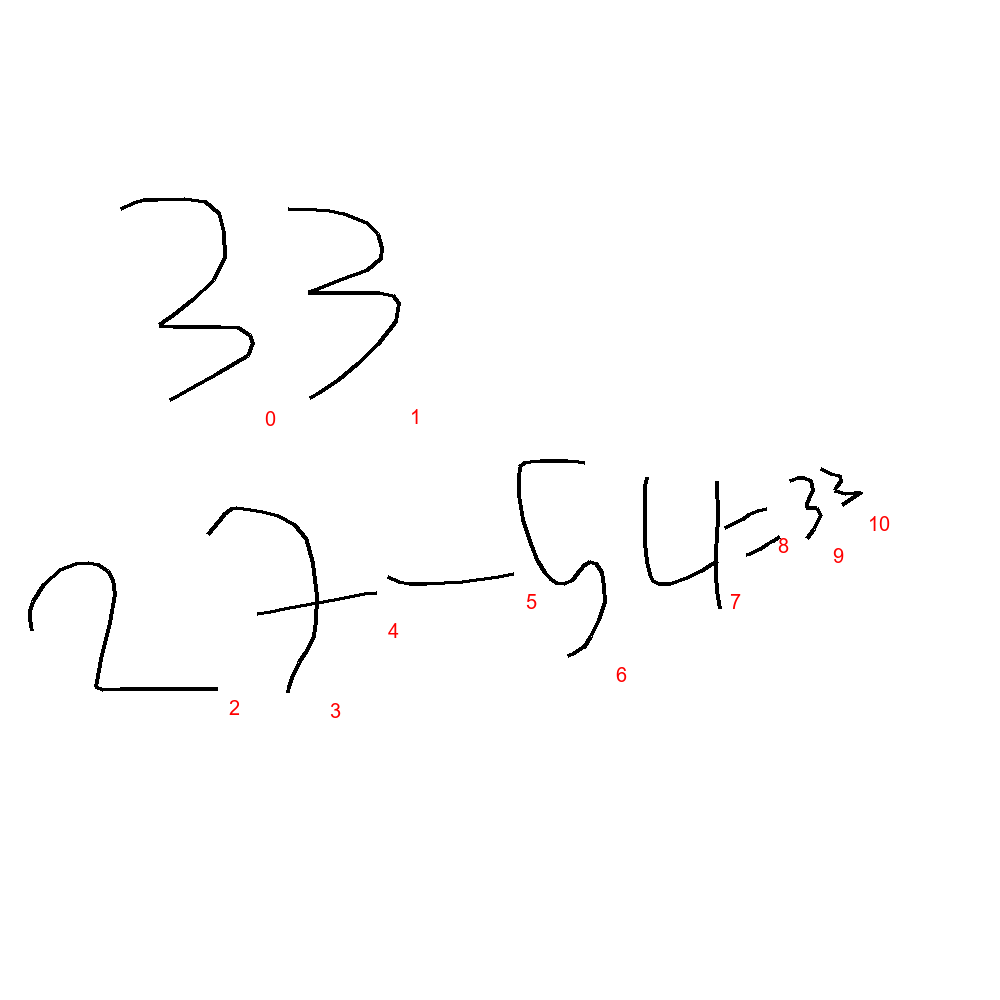 33
0 1
27-54=33
2 3 4 5 6 7 8 9 10